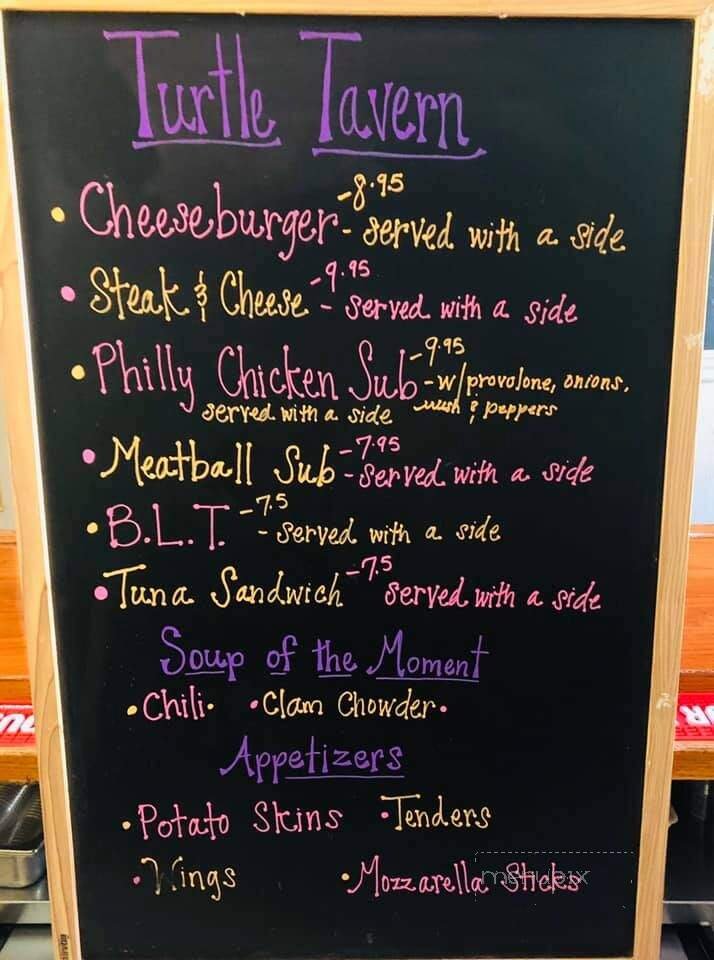 Turtle Tavern
• Cheeseburger -8.95 - served with a side
• Steak & Cheese -9.95 - served with a side
• Philly Chicken Sub -9.95 - w/provolone, onions,
served with a side mush & peppers
• Meatball Sub -7.95 - served with a side
• B.L.T. -7.5 - served with a side
• Tuna Sandwich -7.5 served with a side
Soup of the Moment
• Chili • • Clam Chowder •
Appetizers
• Potato Skins • Tenders
• Wings • Mozzarella Sticks
menupix